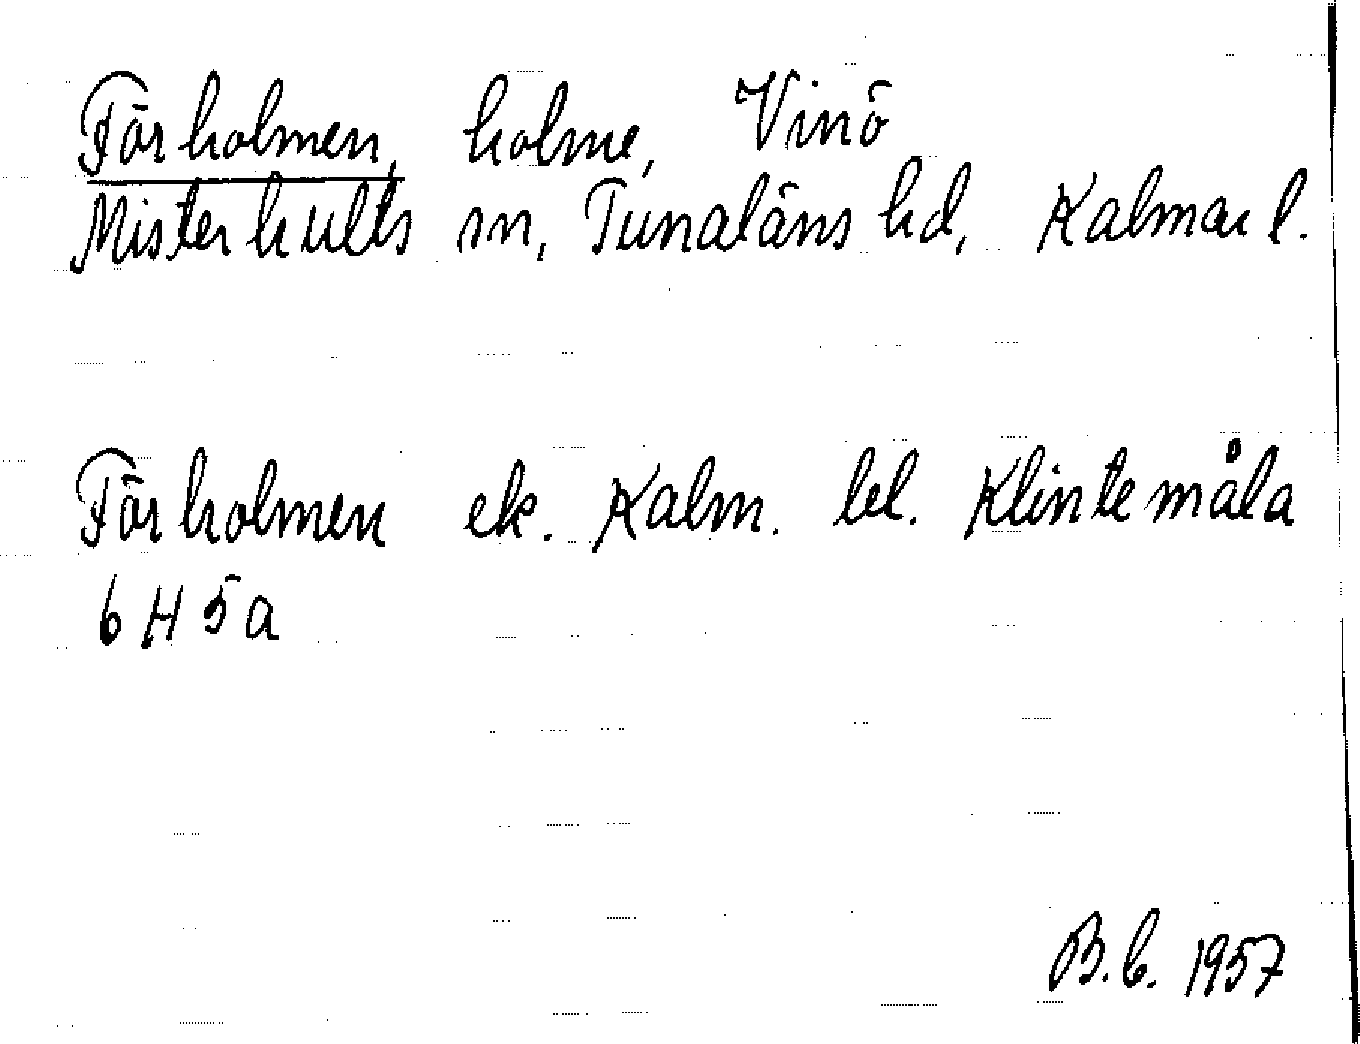 Fårholmen, holme, Vinö
Misterhults sn, Tunaläns hd, Kalmar l.
Fårholmen ek. Kalm. bl. Klintemåla
6 H 5 a
B.C. 1957